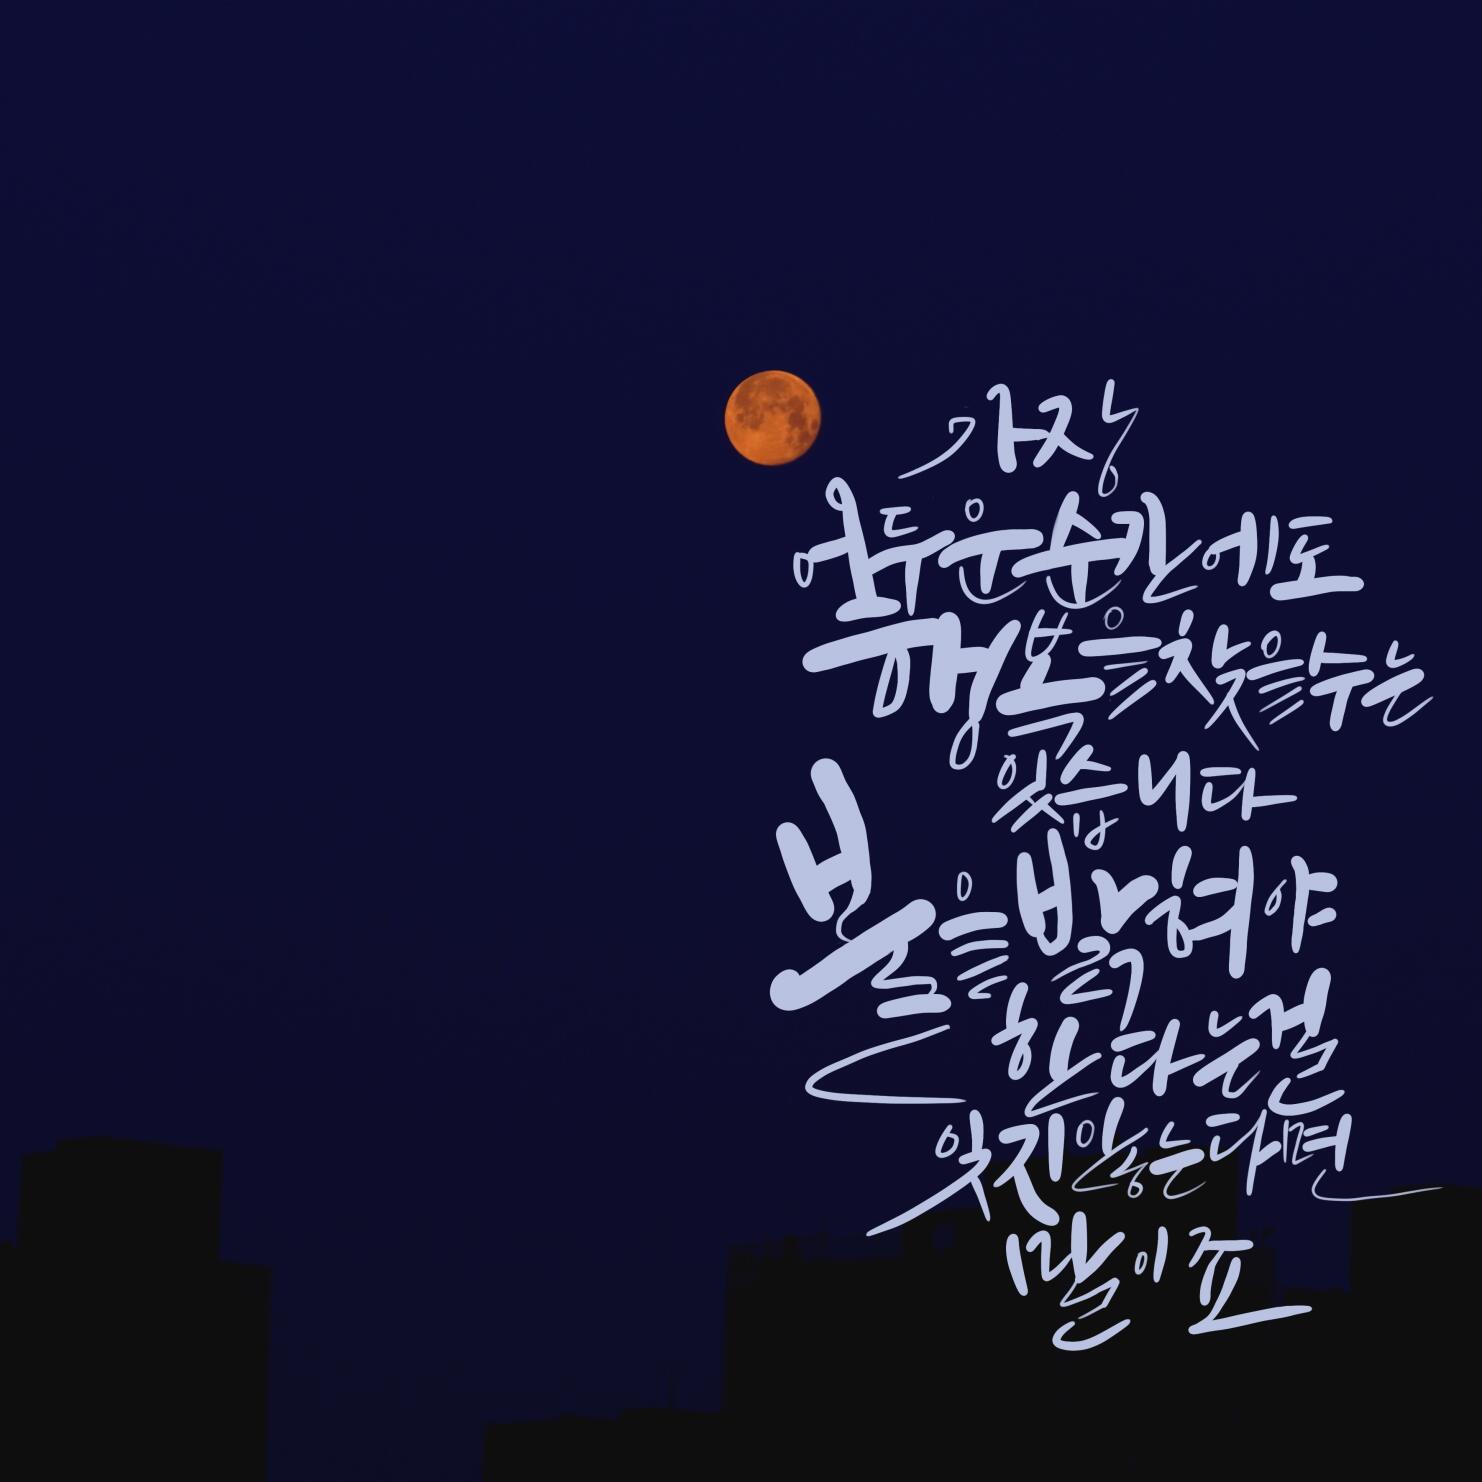 가장
어두운 순간에도
행복을 찾을 수는
있습니다
불을 밝혀야
한다는 걸
잊지 않는다면
말이죠